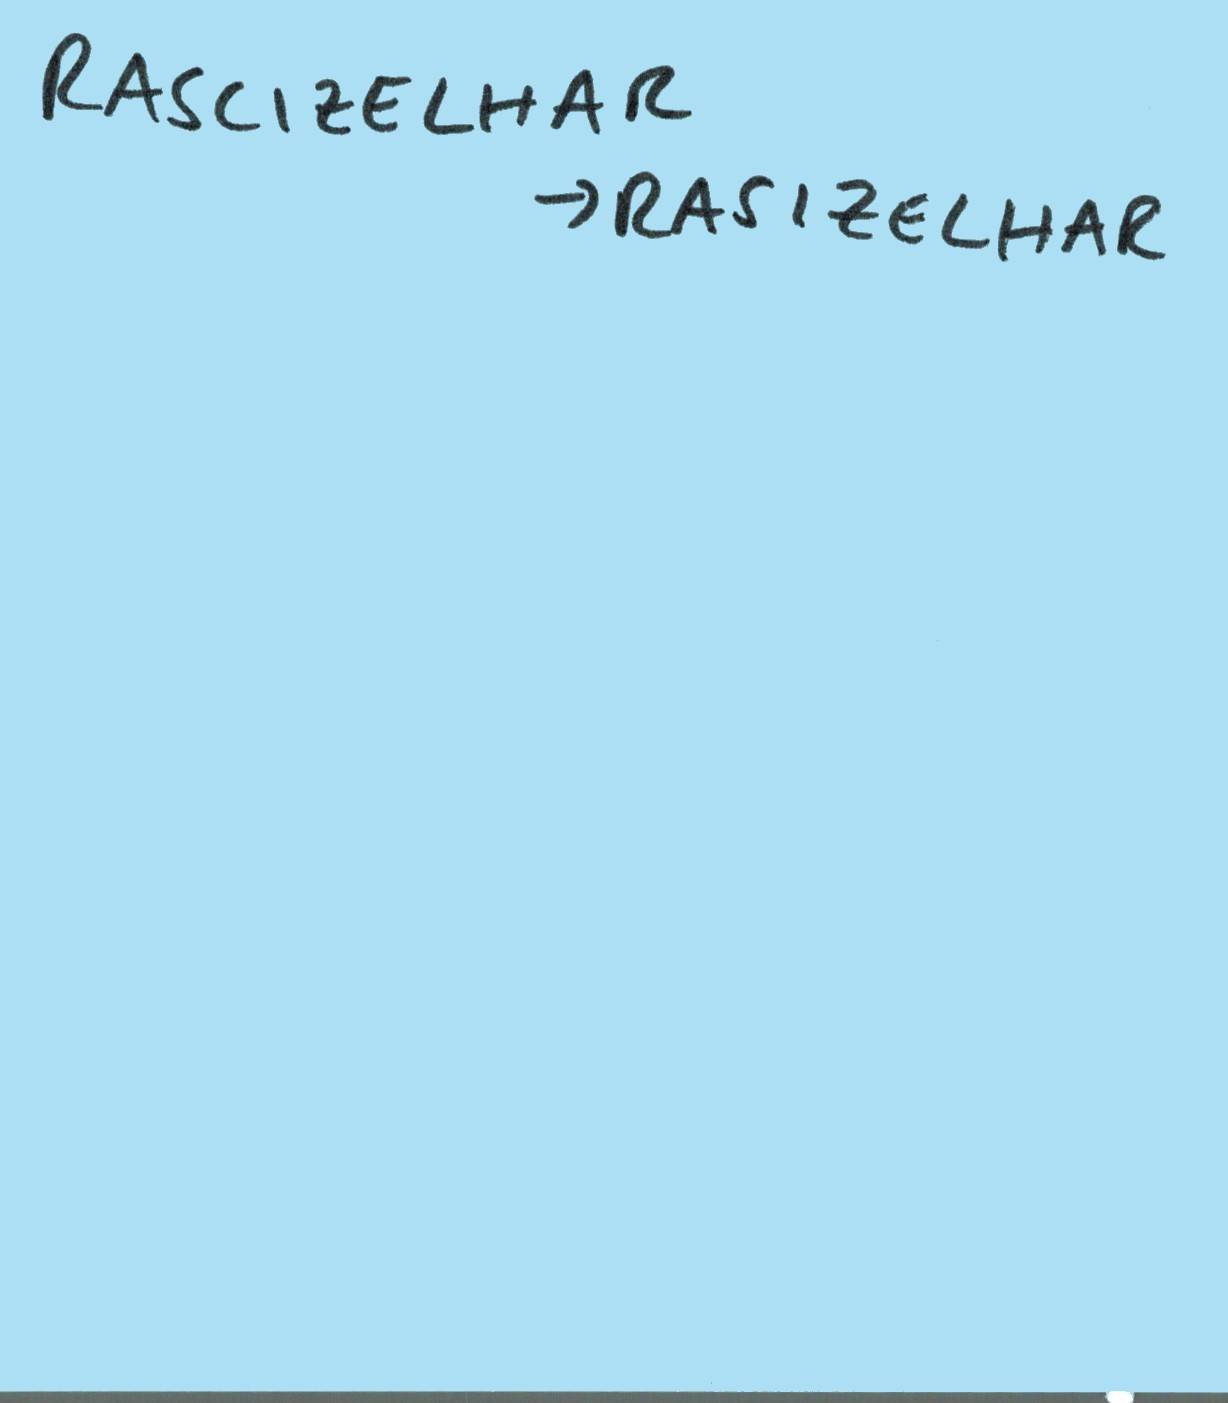 RASCIZELHAR
→RASIZELHAR